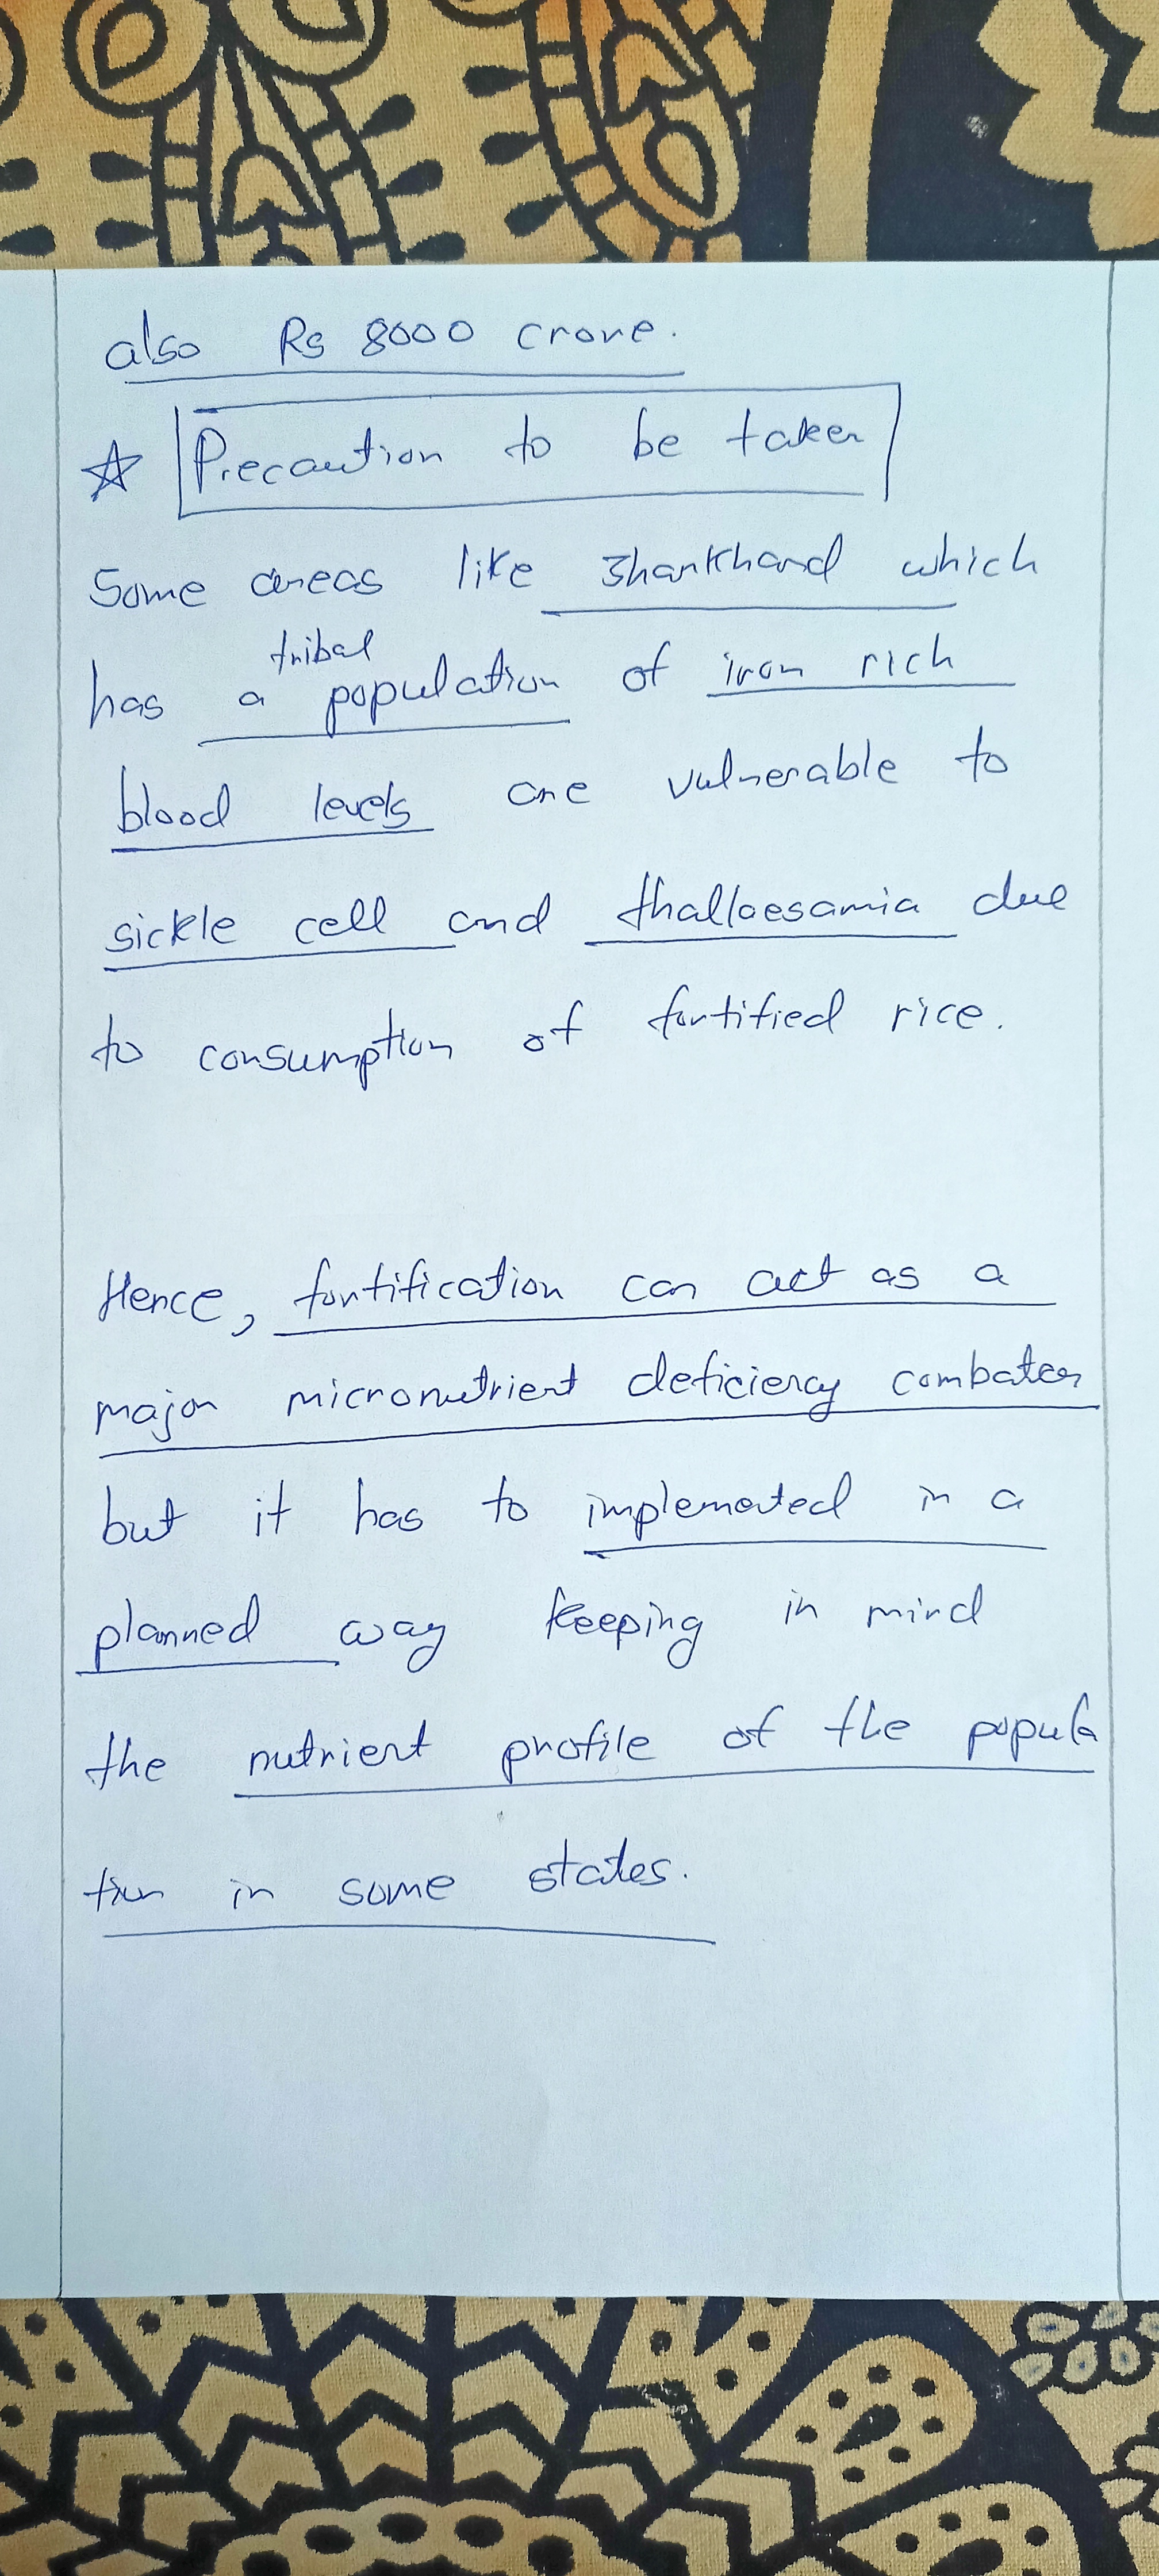 also Rs 8000 crore.
☆ Precaution to be taken
Some areas like Jharkhand which
has a tribal population of iron rich
blood levels are vulnerable to
sickle cell and thallaesamia due
to consumption of fortified rice.
Hence, fortification can act as a
major micronutrient deficiency combater
but it has to implemented in a
planned way keeping in mind
the nutrient profile of the popula
tion in some states.